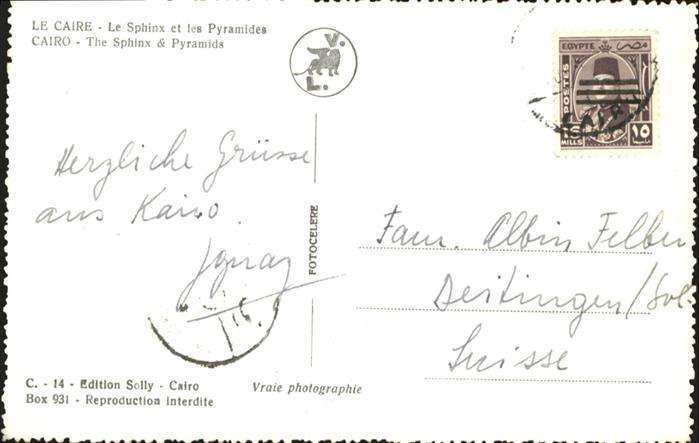 LE CAIRE - Le Sphinx et les Pyramides
CAIRO - The Sphinx & Pyramids
V.
L.
EGYPTE مصر
POSTES
15
MILLS
١٥
CAIRO
Herzliche Grüsse
aus Kairo.
Ignaz
FOTOCELERE
Fam. Albin Felber
Deitingen/Sol.
Suisse
C. - 14 - Edition Solly - Cairo
Box 931 - Reproduction interdite
Vraie photographie